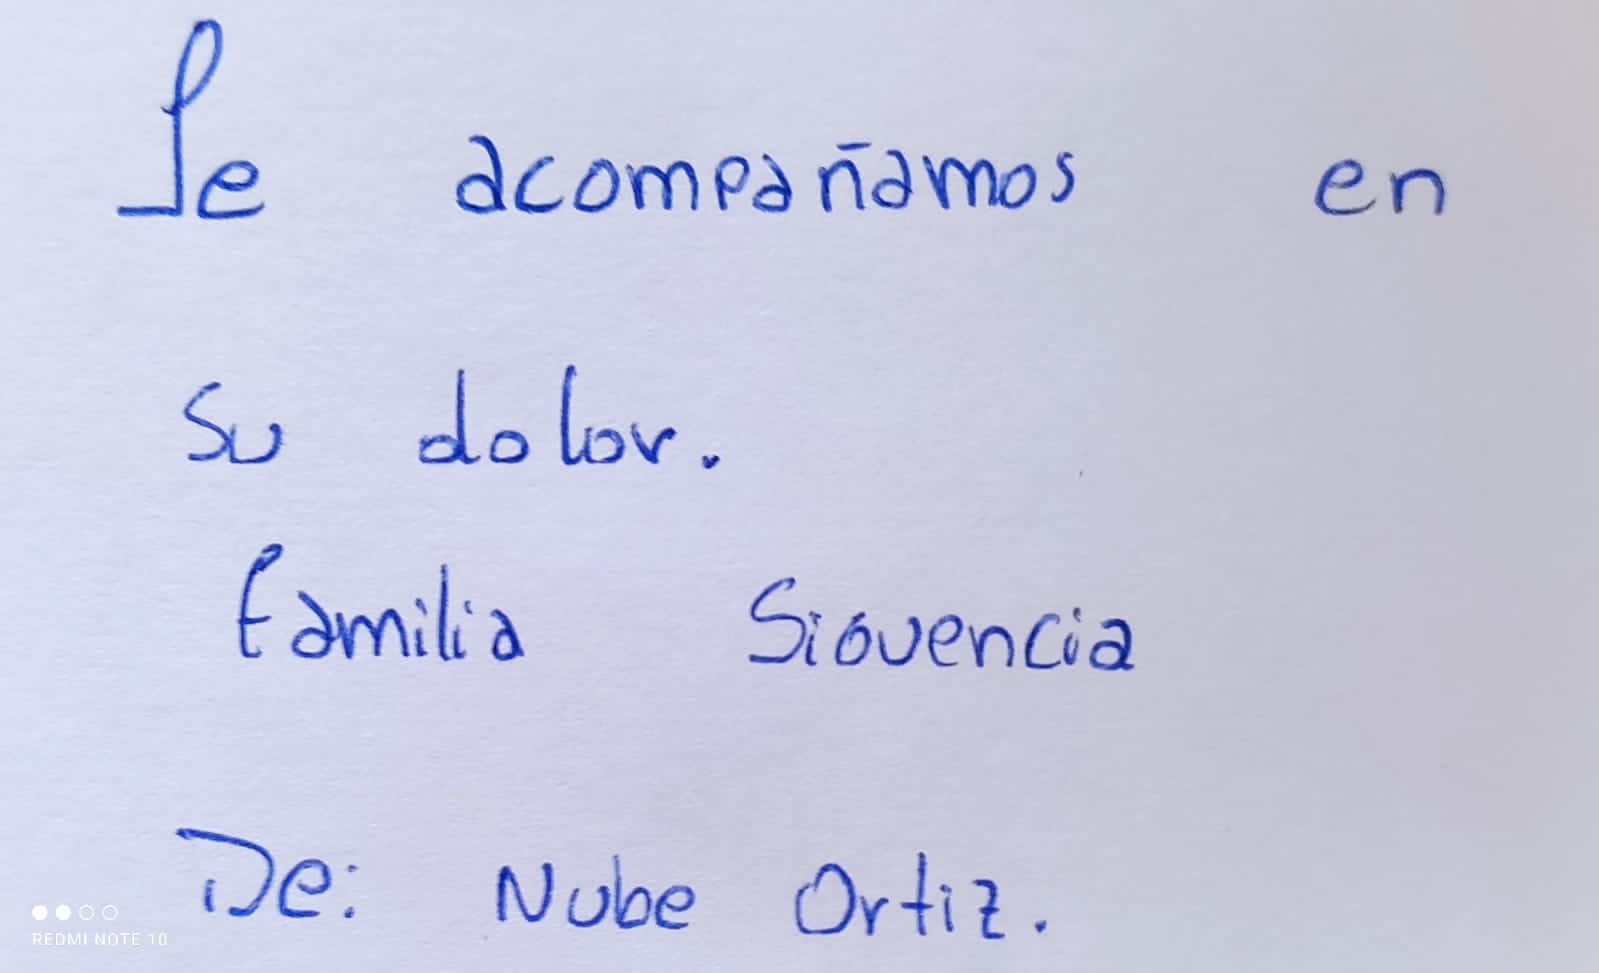 Le acompañamos en
su dolor.
Familia Siovencia
De: Nube Ortiz.
REDMI NOTE 10